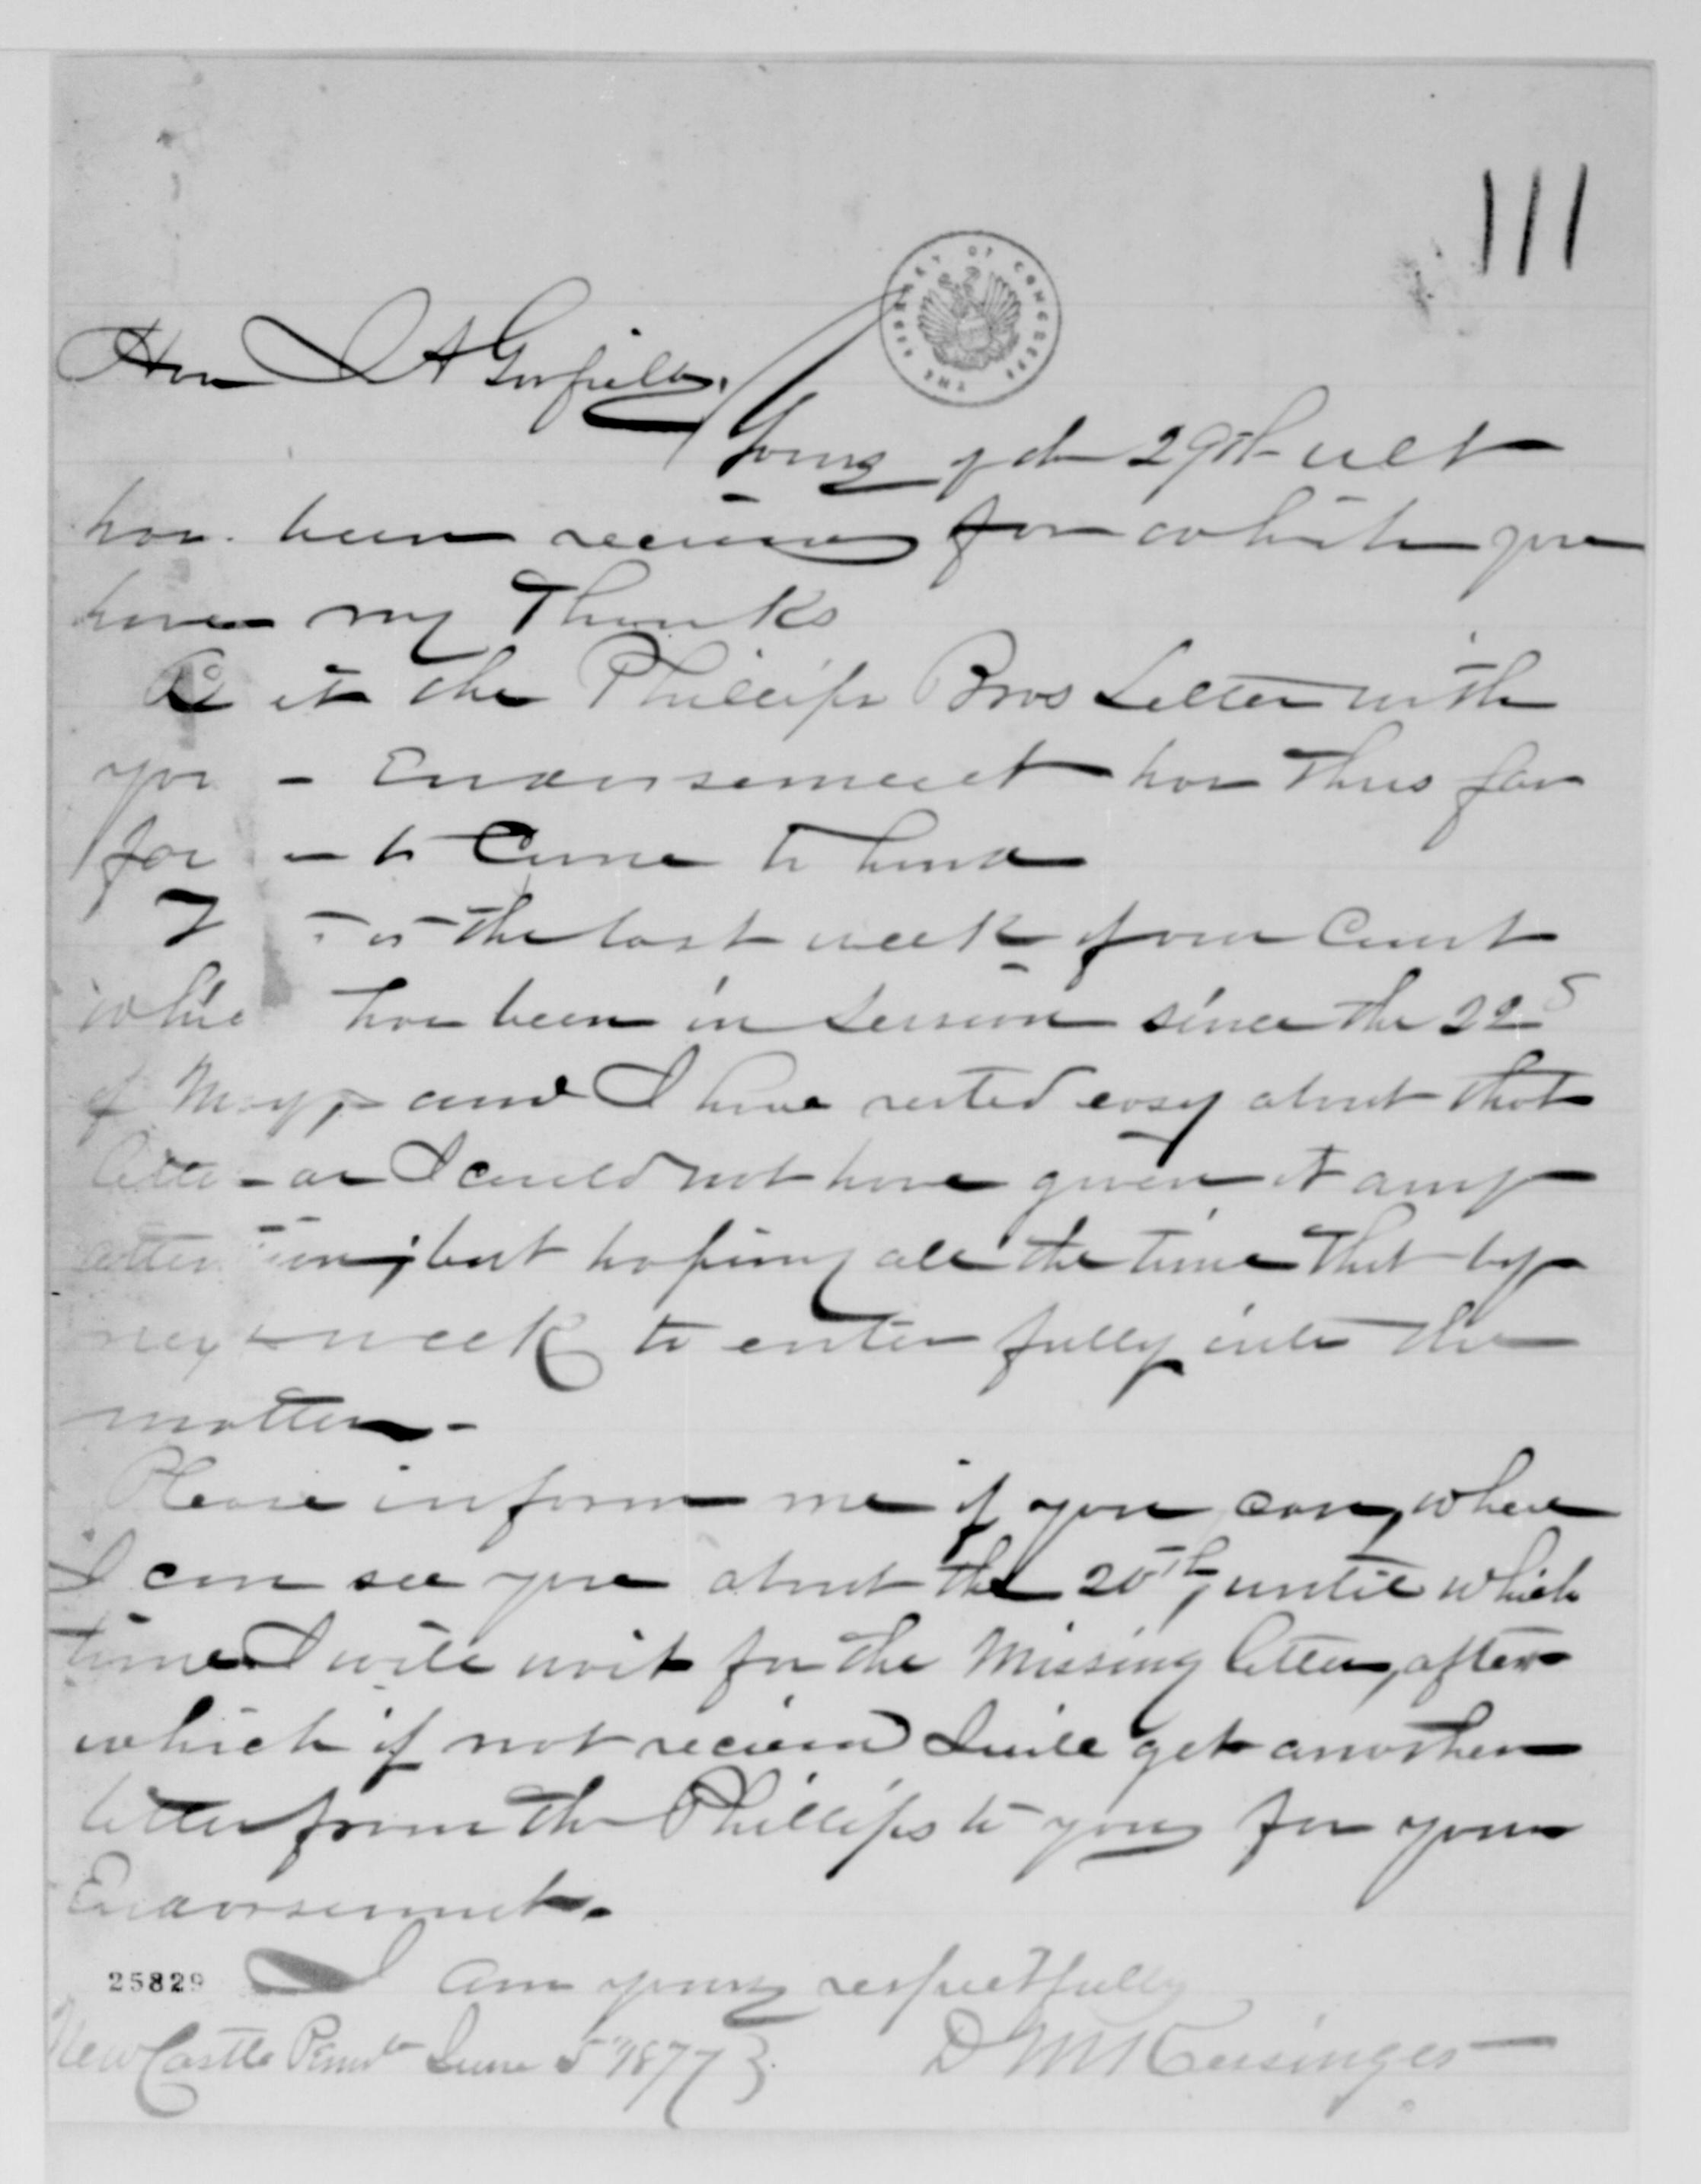 111
THE LIBRARY OF CONGRESS
Hon J A Garfield.
Yours of the 29th ult
has been received for which you
have my Thanks
the Phillips Bros Letter with
you Endorsement has thus far
to Come to hand
is the last week of our Court
has been in Session since the 22
of May, and I have rested easy about that
letter as I could not have given it any
attention; but hoping all the time that by
next week to enter fully into the
matter-
Please inform me if you can, where
I can see you about the 20th, until which
time I will wait for the Missing letter, after
which if not received I will get another
letter from the Phillips to you for your
Endorsement.
25829 I am yours respectfully
New Castle Penna June 5" 1877 D M